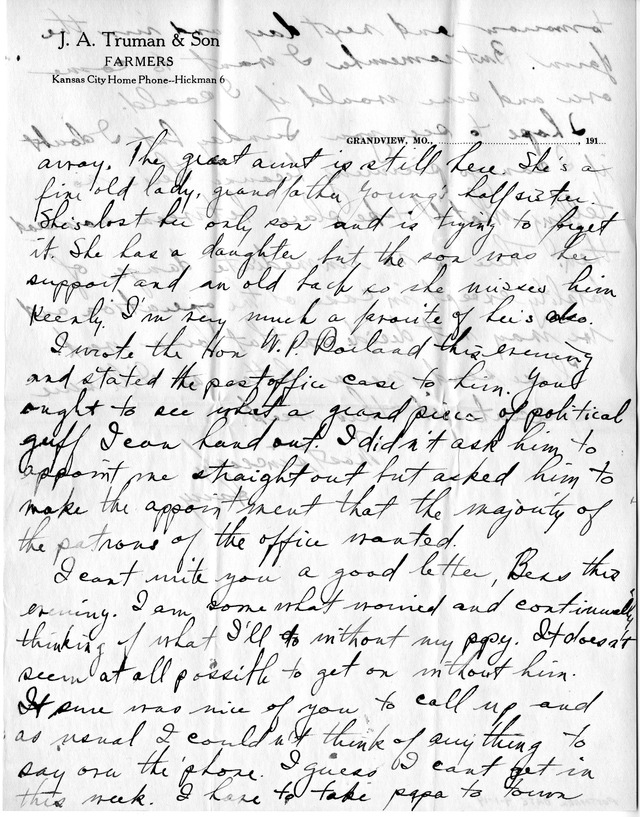 J. A. Truman & Son
FARMERS
Kansas City Home Phone--Hickman 6
GRANDVIEW, MO., 191
away. The great aunt is still here. She's a
fine old lady, grandfather Young's half sister.
She's lost her only son and is trying to forget
it. She has a daughter but the son was her
support and an old bach so she misses him
keenly. I'm very much a favorite of her's also.
I wrote the Hon W.P. Borland this evening
and stated the postoffice case to him. You
ought to see what a grand piece of political
guff I can hand out. I didn't ask him to
appoint me straight out but asked him to
make the appointment that the majority of
the patrons of the office wanted.
I cant write you a good letter, Bess this
evening. I am somewhat worried and continually
thinking of what I'll do without my papy. It doesn't
seem at all possible to get on without him.
It sure was nice of you to call up and
as usual I couldn't think of anything to
say over the 'phone. I guess I cant get in
this week. I have to take papa to town